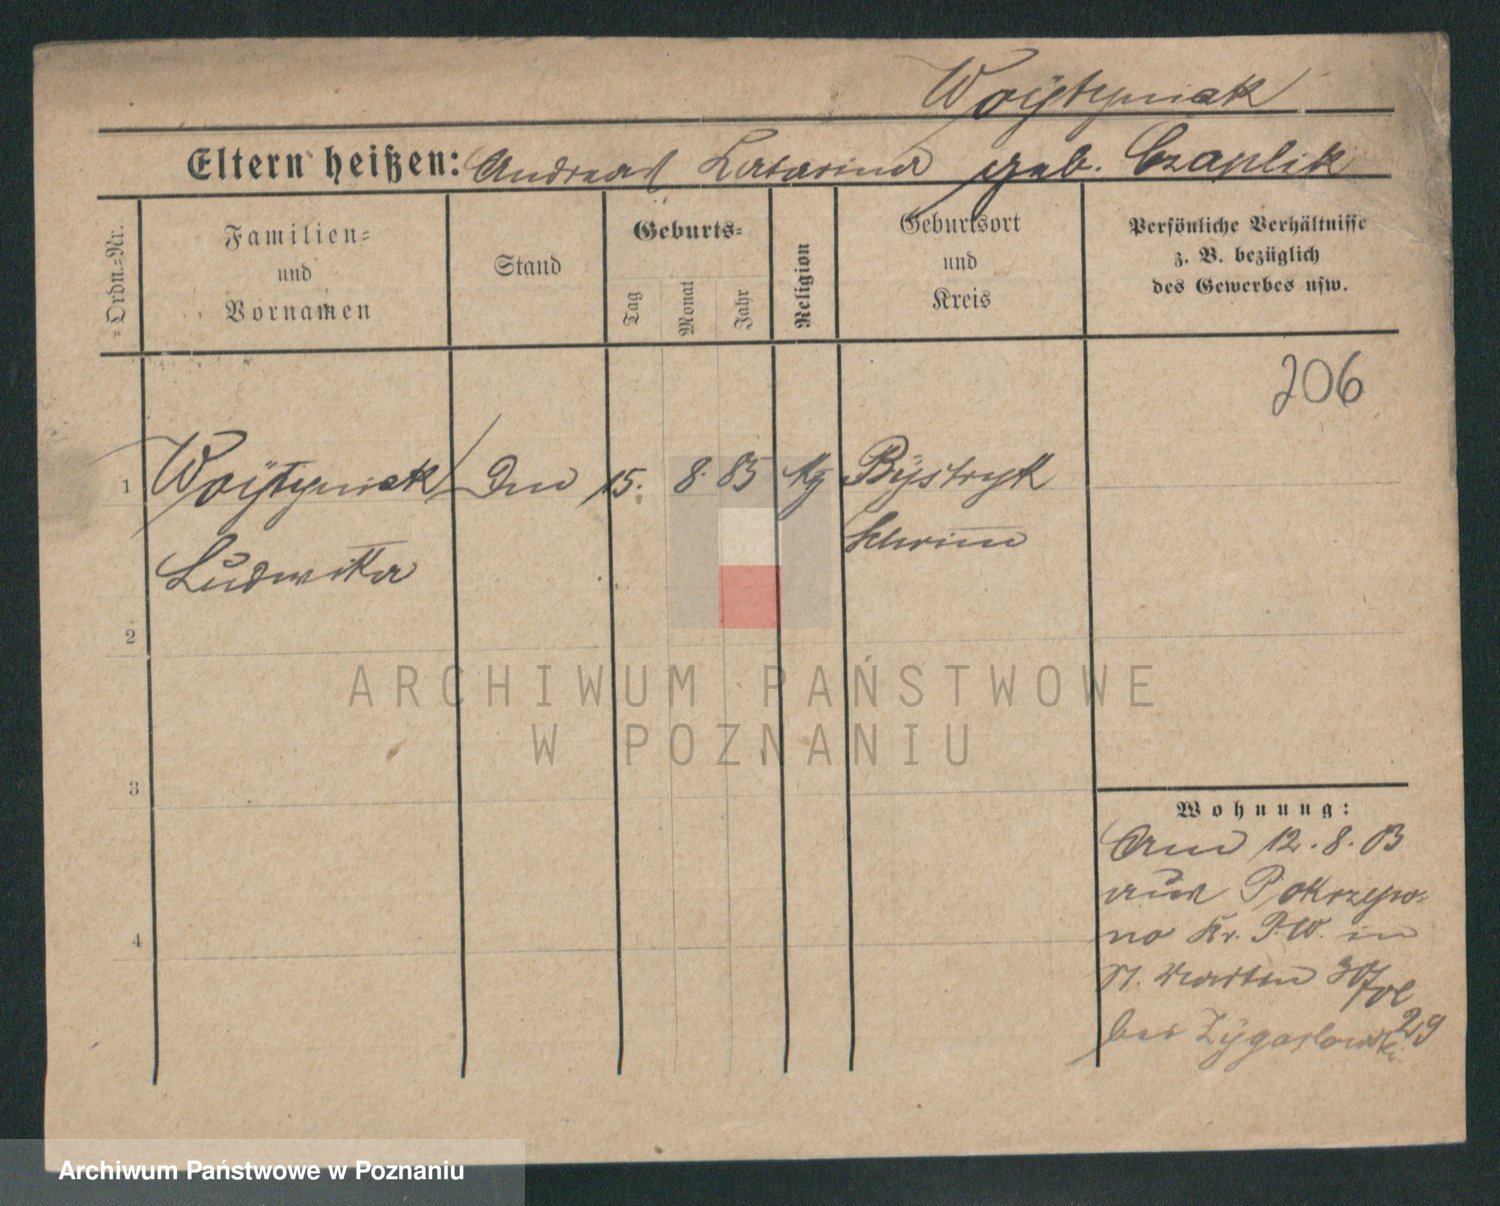 Woijtyniak
Eltern heißen: Andreas Katarina geb. Czaplik
Ordn.-Nr.
Familien-
und
Vornamen
Stand
Geburts-
Tag
Monat
Jahr
Religion
Geburtsort
und
Kreis
Persönliche Verhältnisse
z. B. bezüglich
des Gewerbes usw.
206
1 Woijtyniak 15. 8. 85 Bystryk
Ludwika Schrimm
2
3
4
Wohnung:
Am 12. 8. 03
aus Pokrzyw-
no Kr. P.W. in
St. Martin
bei Zygarlowski 29
ARCHIWUM PAŃSTWOWE
W POZNANIU
Archiwum Państwowe w Poznaniu